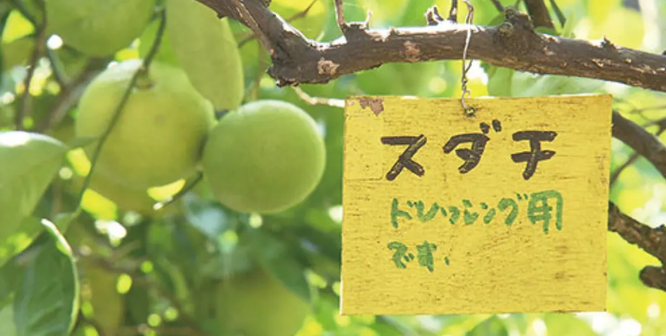 スダチ
ドレッシング用
です.